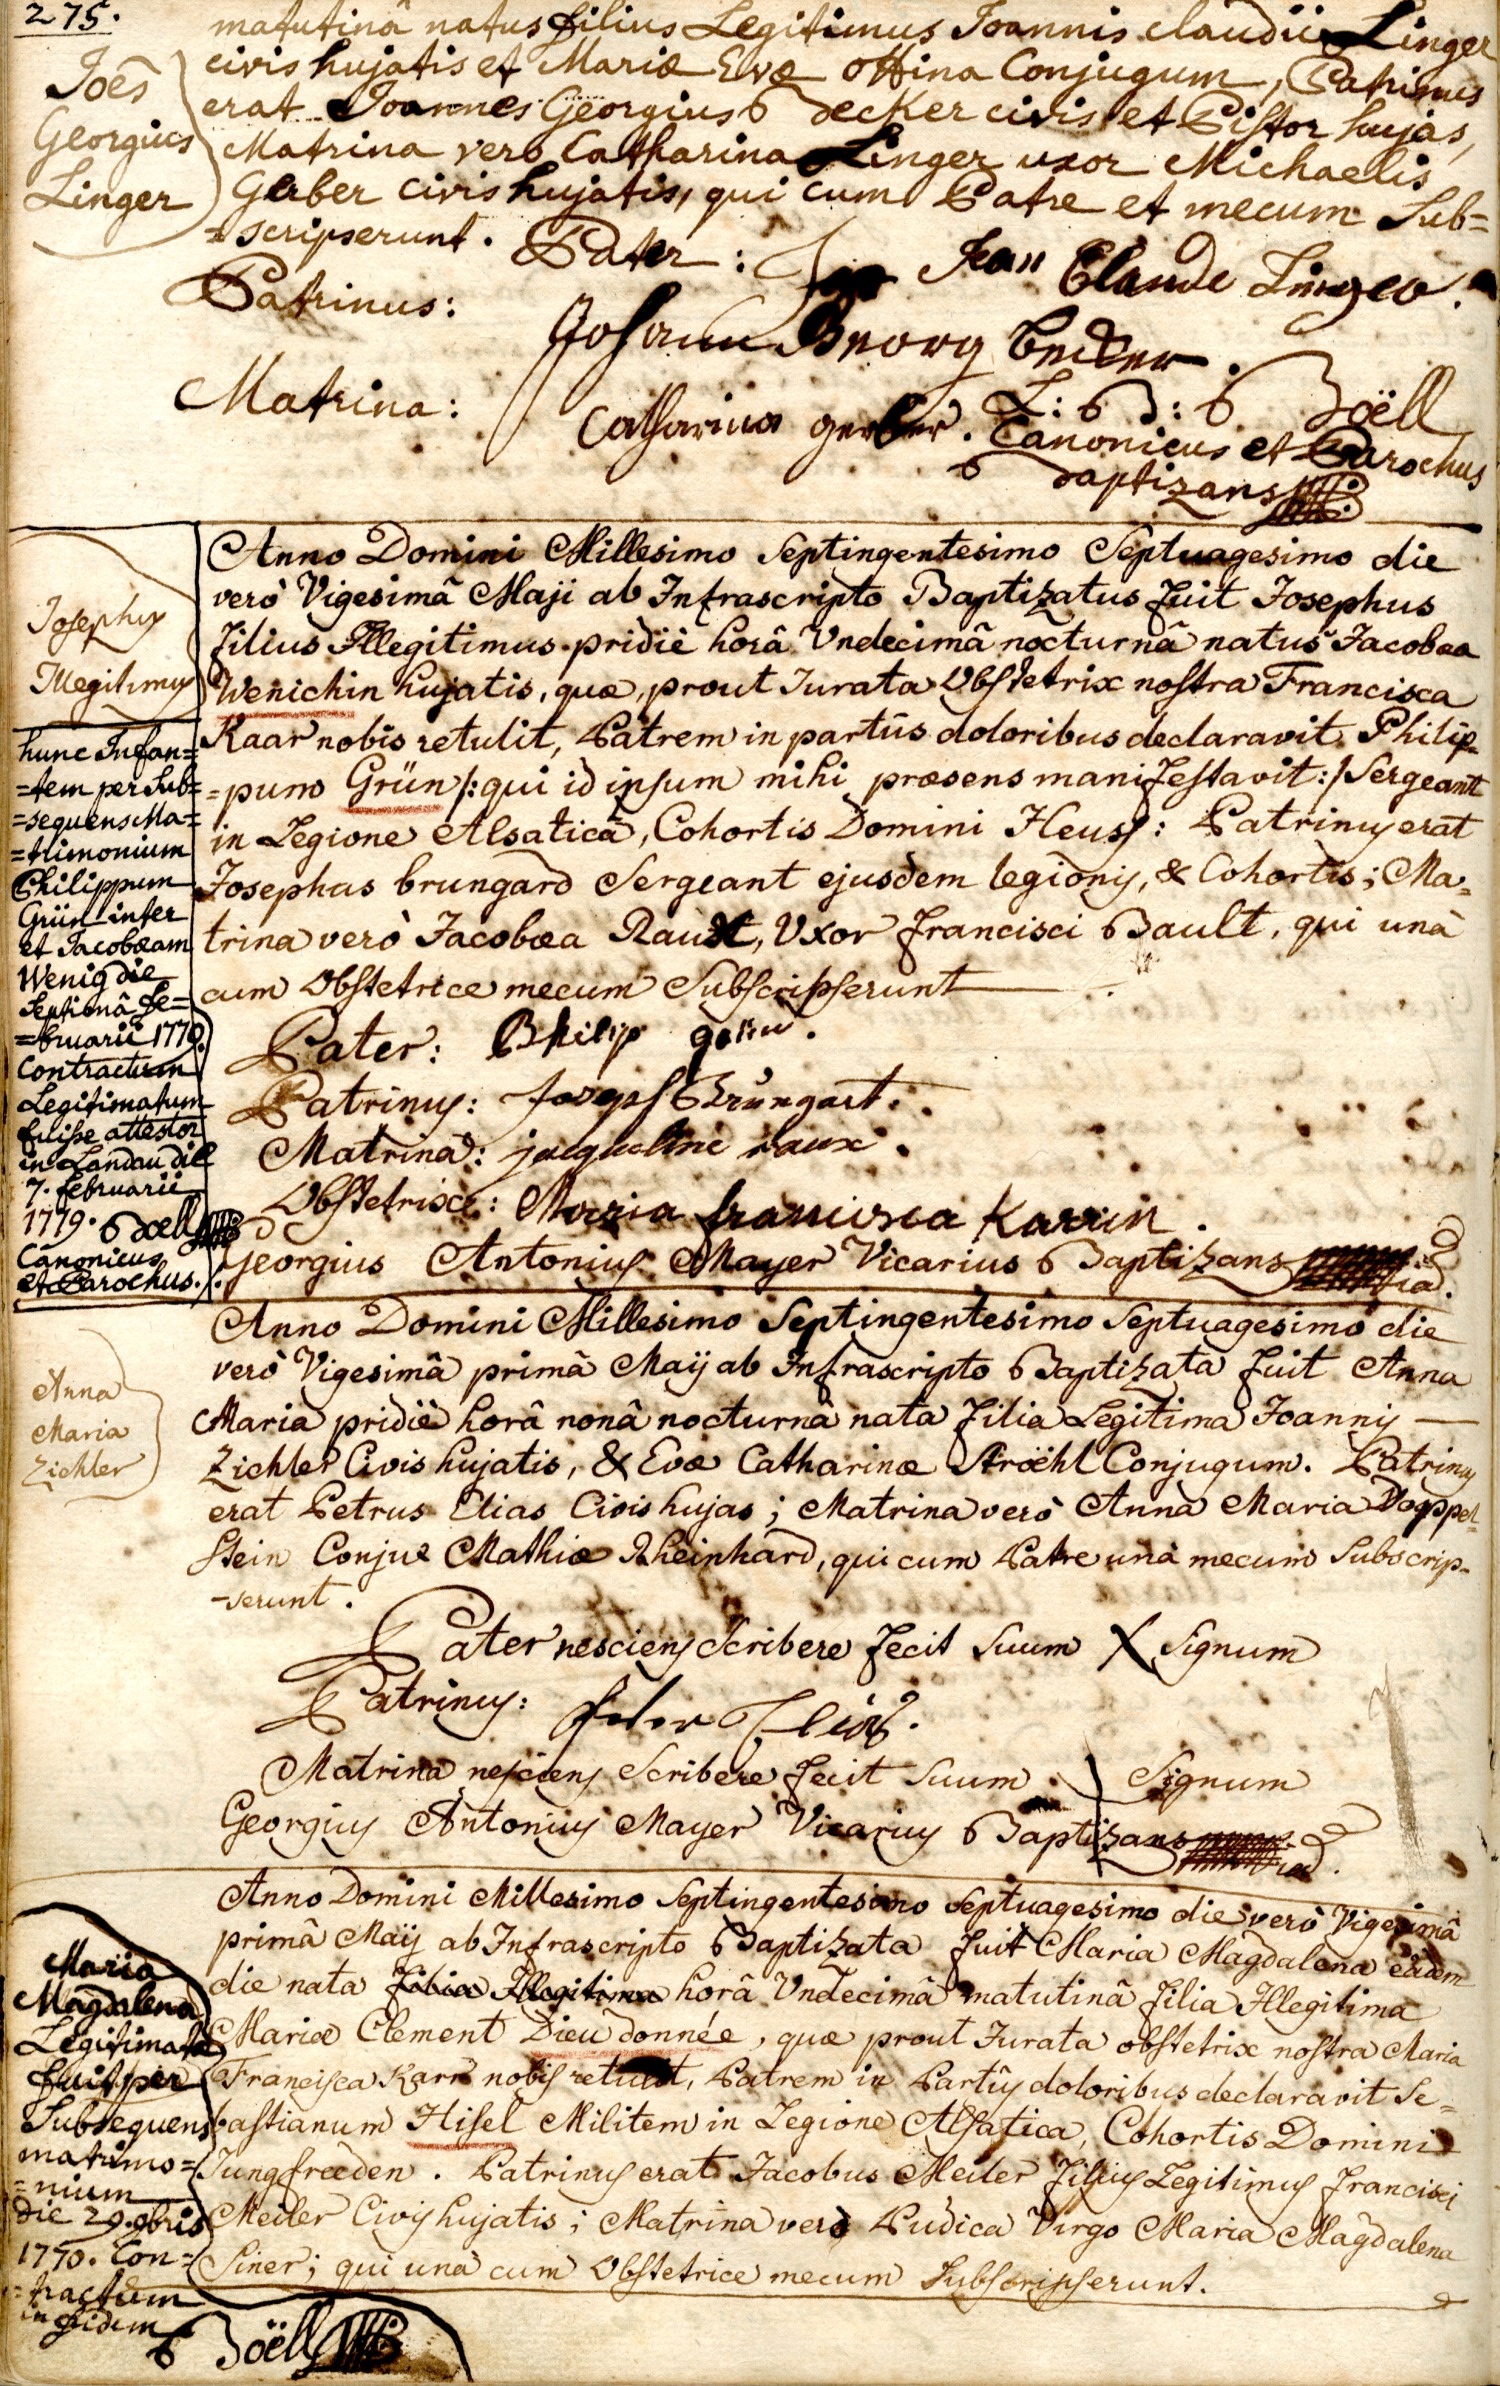 275.
Joẽs
Georgius
Linger
matutinâ natus filius Legitimus Joannis Claudii Linger
civis hujatis et Mariæ Evæ Ottina Conjugum, Patrinus
erat Joannes Georgius Becker civis et Pistor hujas,
Matrina vero Catharina Linger uxor Michaelis
Gerber civis hujatis, qui cum Patre et mecum Sub=
=scripserunt. Pater: Jean Claude Linger.
Patrinus: Johann Georg Becker.
Matrina: Catharina gerber.
L: B: Boëll
Canonicus et Parochus
Baptizans
Josephus
Illegitimus
Anno Domini Millesimo Septingentesimo Septuagesimo die
verò Vigesimâ Maji ab Infrascripto Baptizatus fuit Josephus
filius Illegitimus pridiè horâ Undecimâ nocturnâ natus Jacobæa
Wenichin hujatis, quæ, prout Jurata Obstetrix nostra Francisca
Kaar nobis retulit, Patrem in partûs doloribus declaravit Philip=
=pum Grün /: qui id ipsum mihi præsens manifestavit :/ Sergeant
in Legione Alsaticâ, Cohortis Domini Heuss: Patrinus erat
Josephus brungard Sergeant ejusdem legionis, & Cohortis; Ma=
trina verò Jacobæa Raux, Uxor Francisci Bault, qui unà
cum Obstetrice mecum Subscripserunt
Pater: Philip grün.
Patrinus: Joseph Brungart.
Matrina: jacqueline raux.
Obstetrix: Maria francisca Karrin.
Georgius Antonius Mayer Vicarius Baptizans
hunc Infan=
=tem per Sub=
=sequens Ma=
=trimonium
Philippum
Grün inter
et Jacobæam
Wenig die
Septimâ Fe=
=bruarii 1779.
Contractum
Legitimatum
fuisse attestor
in Landau die
7. februarii
1779. Boell
Canonicus
et Parochus.
Anna
Maria
Zichler
Anno Domini Millesimo Septingentesimo Septuagesimo die
verò Vigesimâ primâ Maij ab Infrascripto Baptizata fuit Anna
Maria pridiè horâ nonâ nocturnâ nata filia Legitima Joannis
Zichler Civis hujatis, & Evæ Catharinæ Ströehl Conjugum. Patrinus
erat Petrus Elias Civis hujas; Matrina verò Anna Maria Doppel=
Stein Conjux Mathiæ Rheinhard, qui cum Patre unà mecum Subscrip=
-serunt.
Pater nesciens Scribere fecit Suum X Signum
Patrinus: Peter Elias.
Matrina nesciens Scribere fecit Suum Signum
Georgius Antonius Mayer Vicarius Baptizans
Maria
Magdalena
Legitimata
fuit per
Subsequens
matrimo=
=nium
die 29. 9bris
1770. Con=
=tractum
in fidem
Boëll
Anno Domini Millesimo Septingentesimo Septuagesimo die verò Vigesimâ
primâ Maij ab Infrascripto Baptizata fuit Maria Magdalena eâdem
die nata filia Illegitima horâ Undecimâ matutinâ filia Illegitima
Mariæ Clement Dieu donnée, quæ prout Jurata obstetrix nostra Maria
Francisca Karr nobis retulit, Patrem in Partûs doloribus declaravit Se=
bastianum Hisel Militem in Legione Alsatica, Cohortis Domini
Jungfreëden. Patrinus erat Jacobus Meiler filius Legitimus Francisci
Meiler Civis hujatis; Matrina verò Pudica Virgo Maria Magdalena
Siner; qui unà cum Obstetrice mecum Subscripserunt.